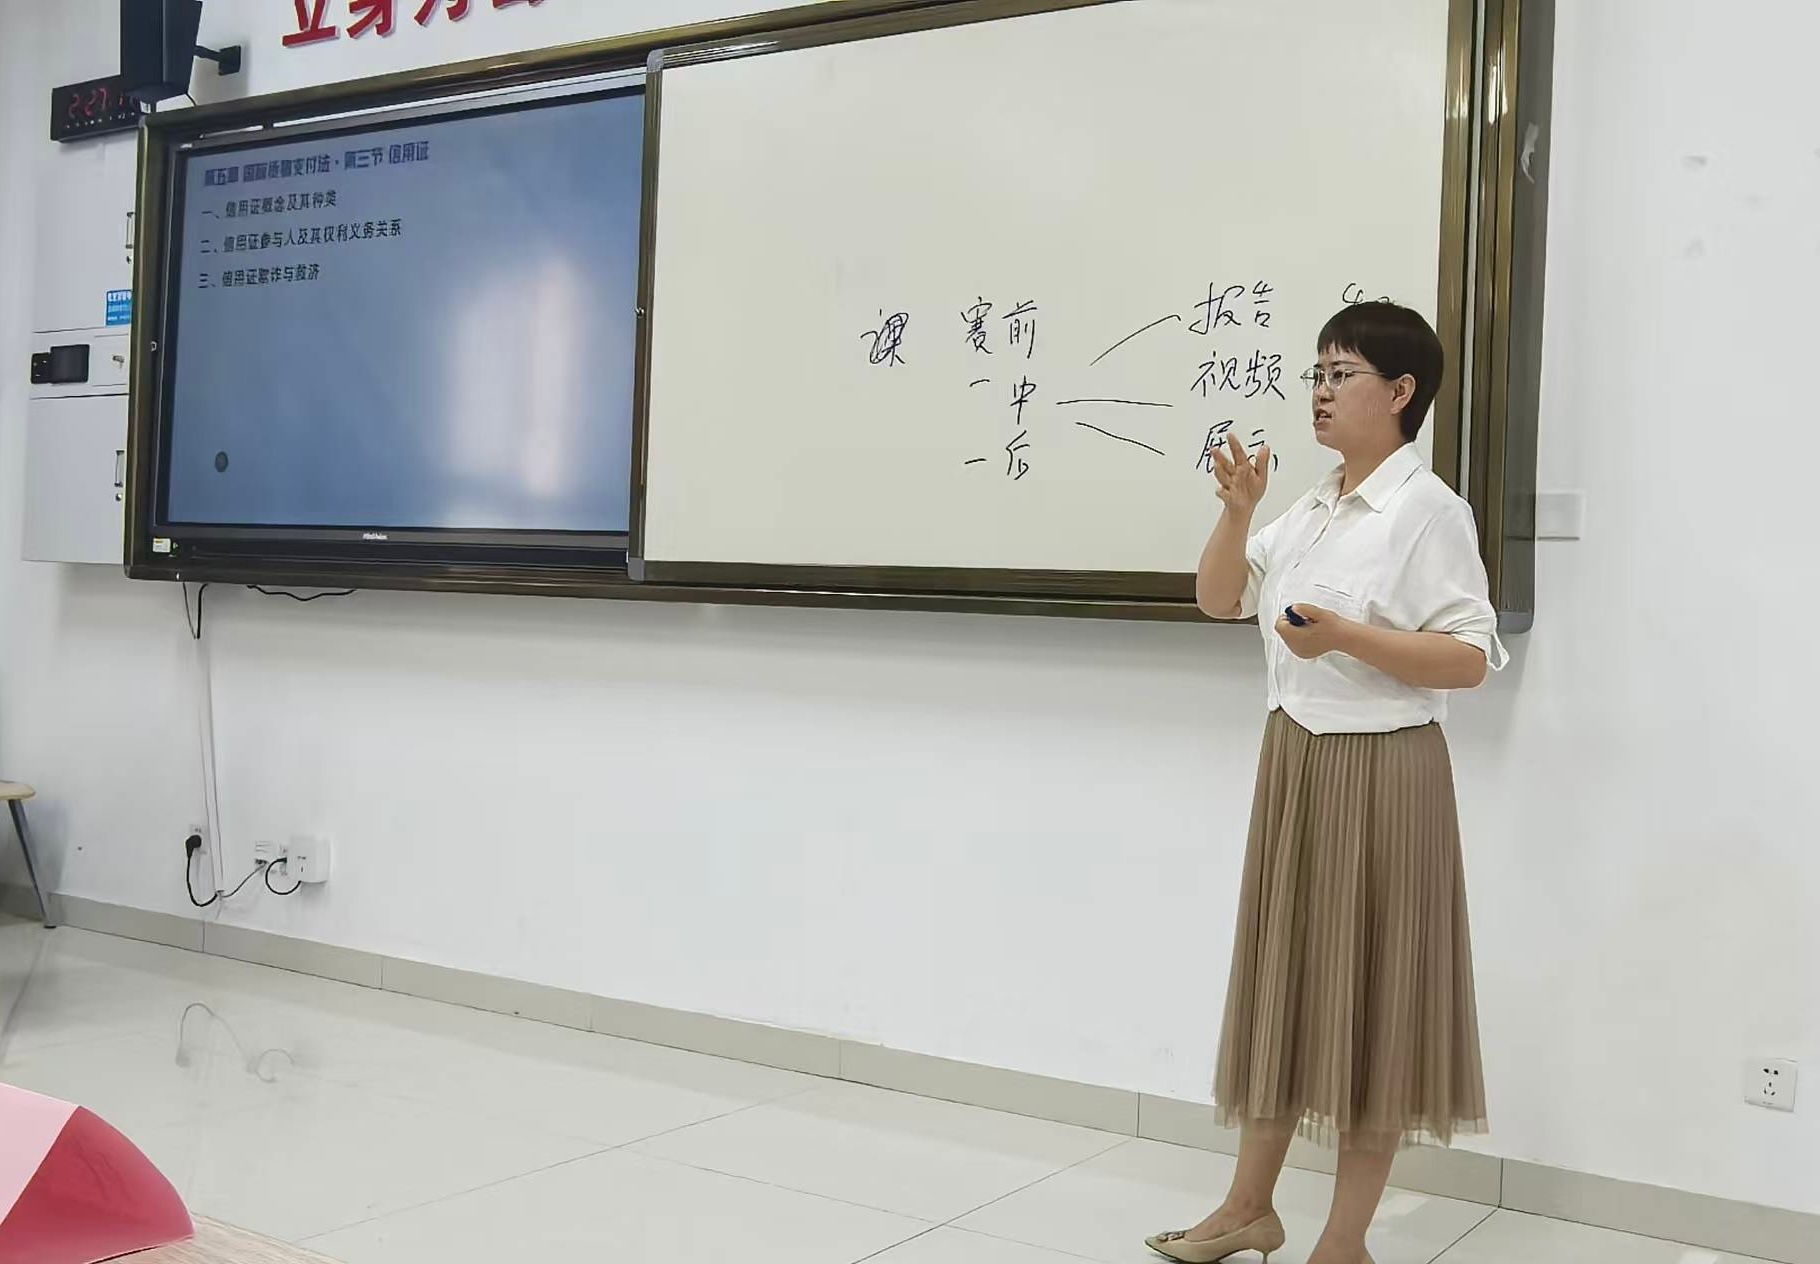 立身
2:27
第五章 国际货物支付法·第三节 信用证
一、信用证概念及其种类
二、信用证参与人及其权利义务关系
三、信用证欺诈与救济
课 赛前 报告
一中 视频
一后 展示